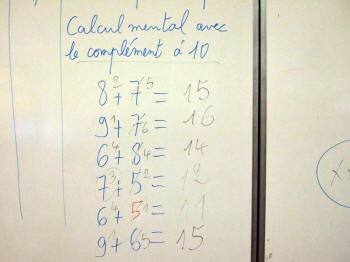 Calcul mental avec
le complément à 10
8 + 7 = 15
2 5
9 + 7 = 16
1 6
6 + 8 = 14
4 4
7 + 5 = 12
3 2
6 + 5 = 11
4 1
9 + 6 = 15
1 5